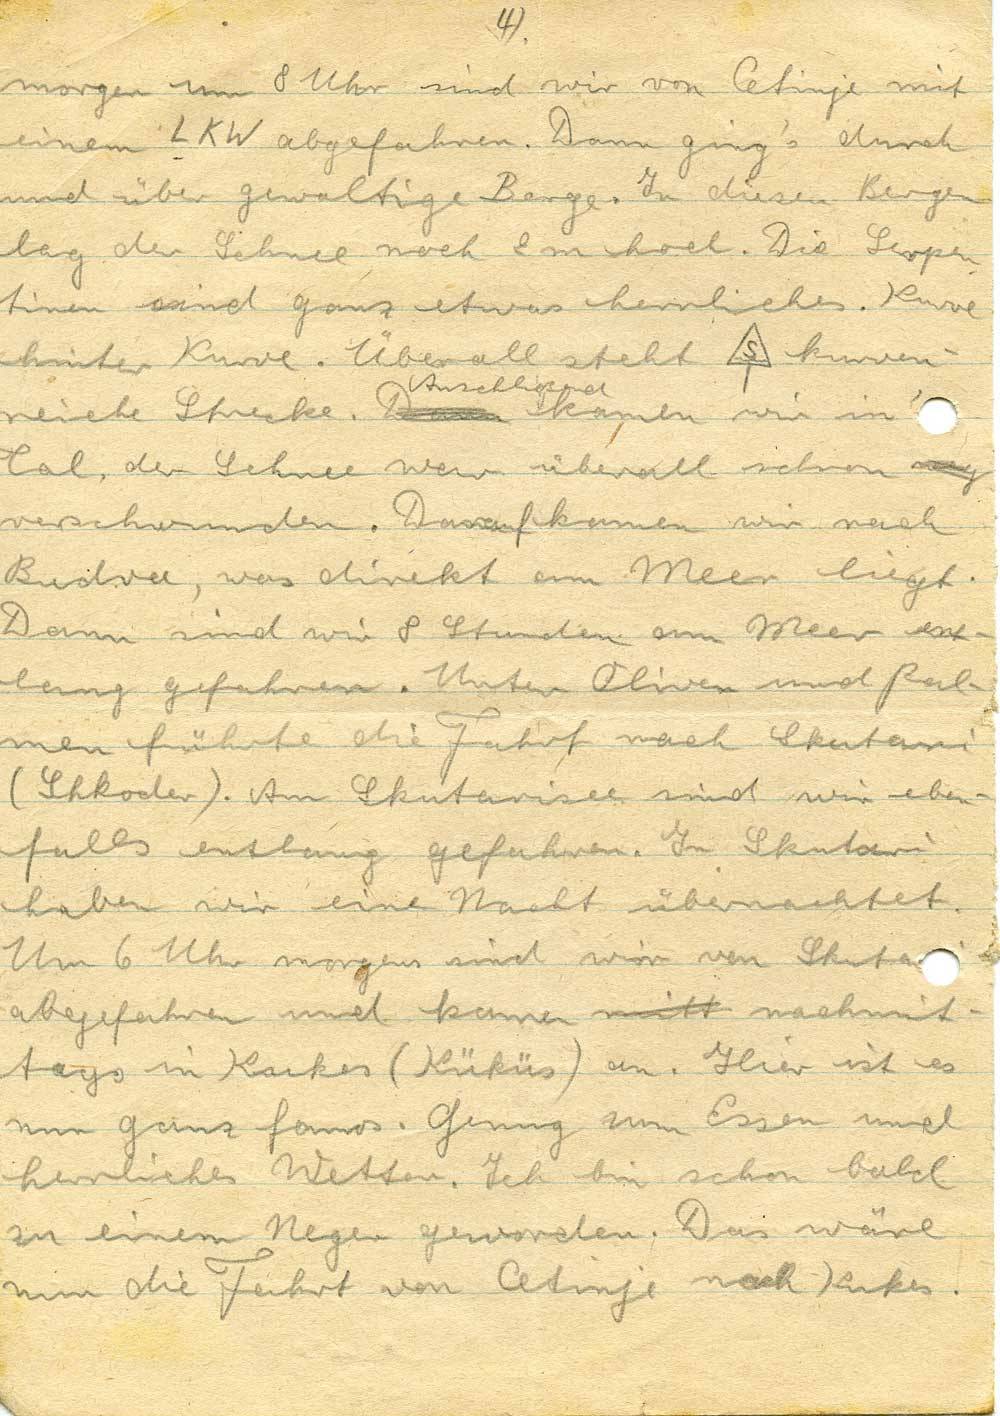 4).
morgen um 8 Uhr sind wir von Cetinje mit
einem LKW abgefahren. Dann ging's durch
und über gewaltige Berge. In diesen Bergen
lag der Schnee noch 2 m hoch. Die Serpen
tinen sind ganz etwas herrliches. Kurve
hinter Kurve. Überall steht S kurven-
reiche Strecke. Anschliesend kamen wir in's
Tal, der Schnee war überall schon
verschwunden. Darauf kamen wir nach
Budva, was direkt am Meer liegt.
Dann sind wir 8 Stunden am Meer ent-
lang gefahren. Unter Oliven und Pal-
men führte die Fahrt nach Skutari
(Shkoder). Am Skutarisee sind wir eben-
falls entlang gefahren. In Skutari
haben wir eine Nacht übernachtet.
Um 6 Uhr morgens sind wir von Skutari
abgefahren und kamen mitt nachmit-
tags in Kukes (Küküs) an. Hier ist es
nun ganz famos. Genug zum Essen und
herrliches Wetter. Ich bin schon bald
zu einem Neger geworden. Das wäre
nun die Fahrt von Cetinje nach Kukes.